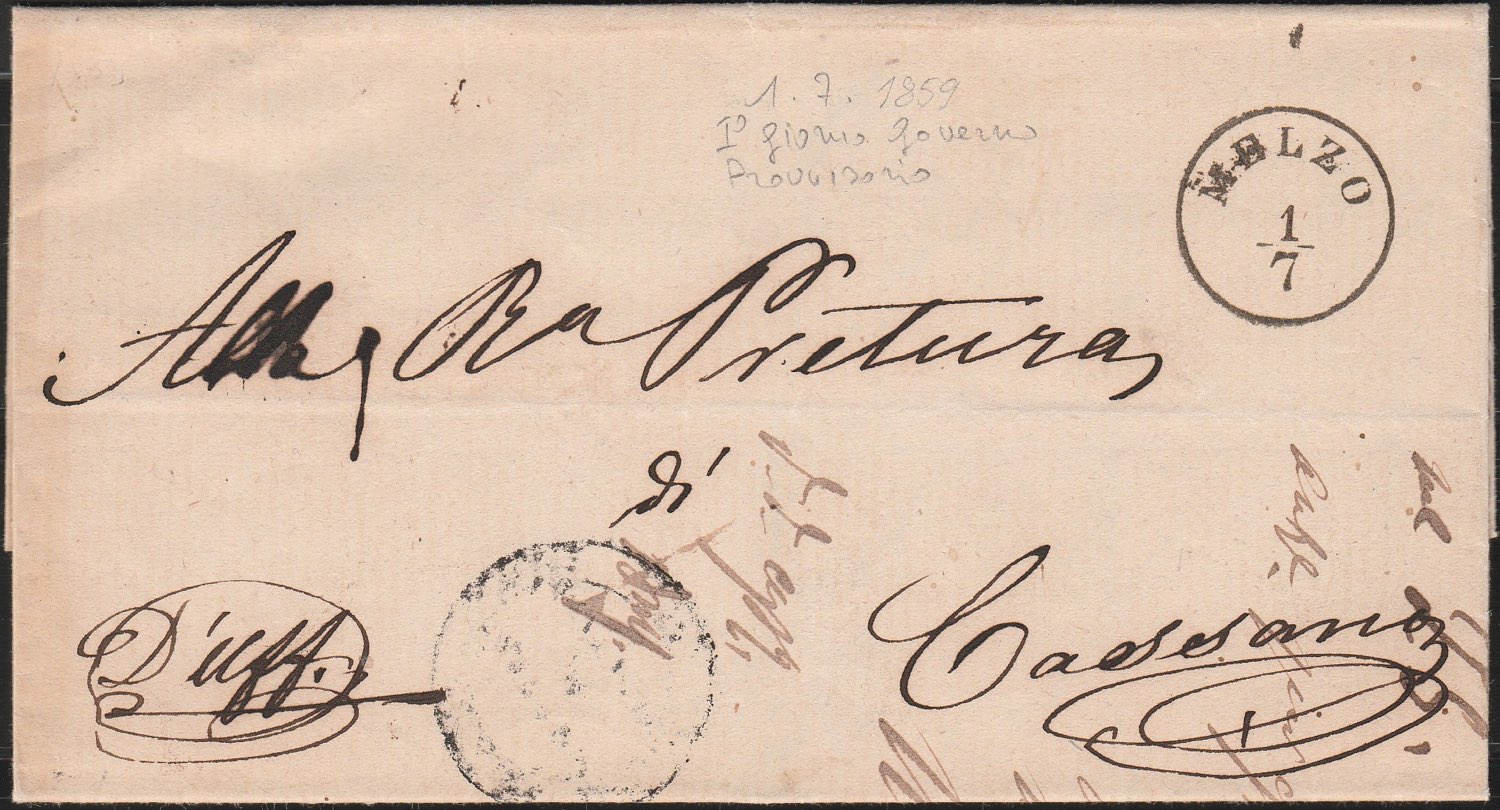 1. 7. 1859
I° giorno Governo
Provvisorio
MELZO
1
7
Alla Ra Pretura
di
Cassano
D'uff.